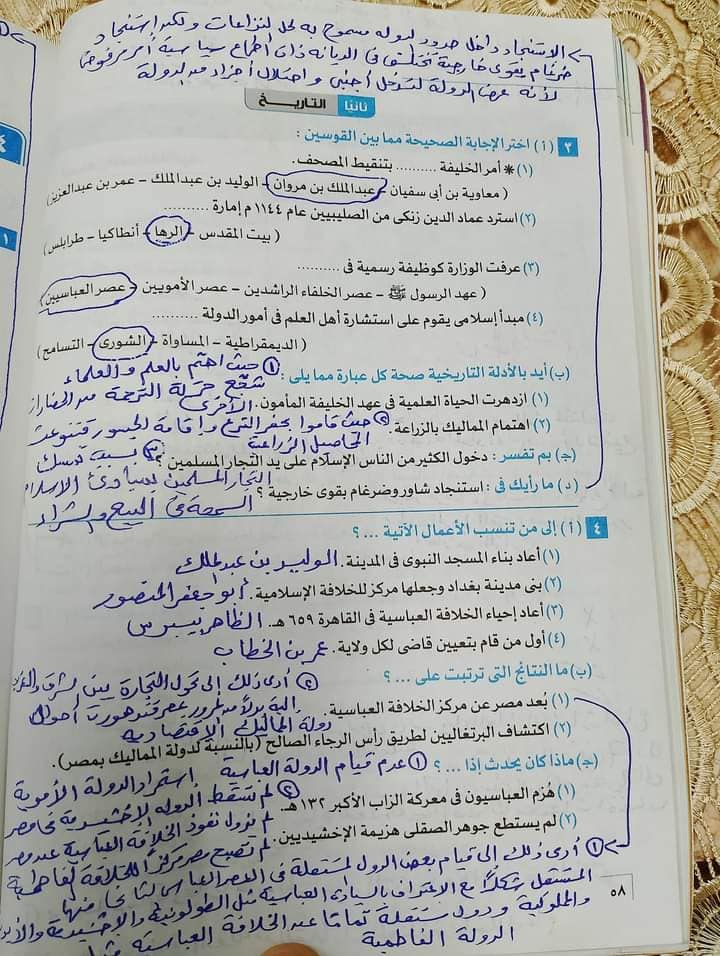 الاستنجاد داخل حدود الدولة مسموح به لحل النزاعات ولكن استنجاد
ضرغام بقوى خارجية تختلف فى الديانة ذات أطماع سياسية أمر مرفوض
لأنه عرض الدولة لتدخل أجنبى واحتلال أجزاء من الدولة
ثانيًا التاريخ
٣ (أ) اختر الإجابة الصحيحة مما بين القوسين :
(١) * أمر الخليفة .......... بتنقيط المصحف.
( معاوية بن أبى سفيان – عبدالملك بن مروان – الوليد بن عبد الملك – عمر بن عبدالعزيز)
(٢) استرد عماد الدين زنكى من الصليبيين عام ١١٤٤ م إمارة ..........
( بيت المقدس – الرها – أنطاكيا – طرابلس)
(٣) عرفت الوزارة كوظيفة رسمية فى ..........
( عهد الرسول ﷺ – عصر الخلفاء الراشدين – عصر الأمويين – عصر العباسيين)
(٤) مبدأ إسلامى يقوم على استشارة أهل العلم فى أمور الدولة ..........
( الديمقراطية – المساواة – الشورى – التسامح)
(ب) أيد بالأدلة التاريخية صحة كل عبارة مما يلى : ① حيث اهتم بالعلم والعلماء
شجع حركة الترجمة من الحضارات
(١) ازدهرت الحياة العلمية فى عهد الخليفة المأمون. الأخرى
(٢) اهتمام المماليك بالزراعة. ② حيث قاموا بحفر الترع وإقامة الجسور فتنوعت
المحاصيل الزراعية
(ج) بم تفسر : دخول الكثير من الناس الإسلام على يد التجار المسلمين ؟ بسبب تمسك
التجار المسلمين بمبادئ الإسلام
(د) ما رأيك فى : استنجاد شاور وضرغام بقوى خارجية ؟ السمحة فى البيع والشراء
٤ (أ) إلى من تنسب الأعمال الآتية ... ؟
(١) أعاد بناء المسجد النبوى فى المدينة. الوليد بن عبدالملك
(٢) بنى مدينة بغداد وجعلها مركز للخلافة الإسلامية. أبو جعفر المنصور
(٣) أعاد إحياء الخلافة العباسية فى القاهرة ٦٥٩ هـ. الظاهر بيبرس
(٤) أول من قام بتعيين قاضى لكل ولاية. عمر بن الخطاب
(ب) ما النتائج التى ترتبت على ... ؟ ② أدى ذلك إلى تحول التجارة بين الشرق والغرب
(١) بُعد مصر عن مركز الخلافة العباسية. إليه بدلاً من المرور بمصر فتدهورت أحوال
دولة المماليك الاقتصادية
(٢) اكتشاف البرتغاليين لطريق رأس الرجاء الصالح (بالنسبة لدولة المماليك بمصر).
(ج) ماذا كان يحدث إذا ... ؟ ① عدم قيام الدولة العباسية استمرار الدولة الأموية
(١) هُزم العباسيون فى معركة الزاب الأكبر ١٣٢ هـ. ② لم تسقط الدولة الإخشيدية فى مصر
لم يزول نفوذ الخلافة العباسية عن مصر
(٢) لم يستطع جوهر الصقلى هزيمة الإخشيديين. لم تصبح مصر مركزاً للخلافة الفاطمية
① أدى ذلك إلى قيام بعض الدول المستقلة فى العصر العباسى الثانى منها
المستقل شكلاً مع الاعتراف بالسيادة العباسية مثل الطولونية والإخشيدية والأيوبية
والمملوكية ودول مستقلة تمامًا عن الخلافة العباسية مثل
الدولة الفاطمية
٥٨